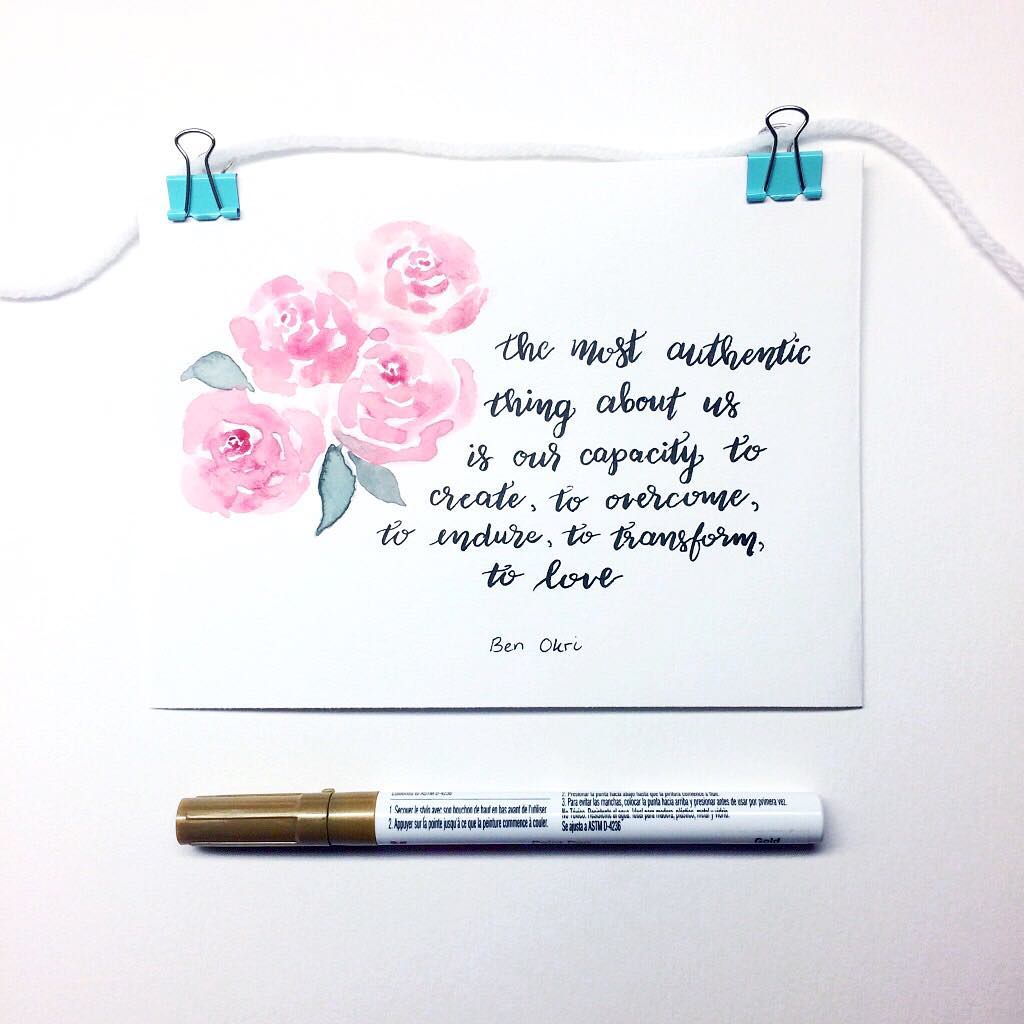 the most authentic
thing about us
is our capacity to
create, to overcome,
to endure, to transform,
to love
Ben Okri
1. Secouer le stylo avec son bouchon de haut en bas avant de l'utiliser.
2. Appuyer sur la pointe jusqu'à ce que la peinture commence à couler.
2. Presionar la punta hacia abajo hasta que la pintura comience a fluir.
3. Para evitar las manchas, colocar la punta hacia arriba y presionar antes de usar por primera vez.
Se ajusta a ASTM D-4236
Gold